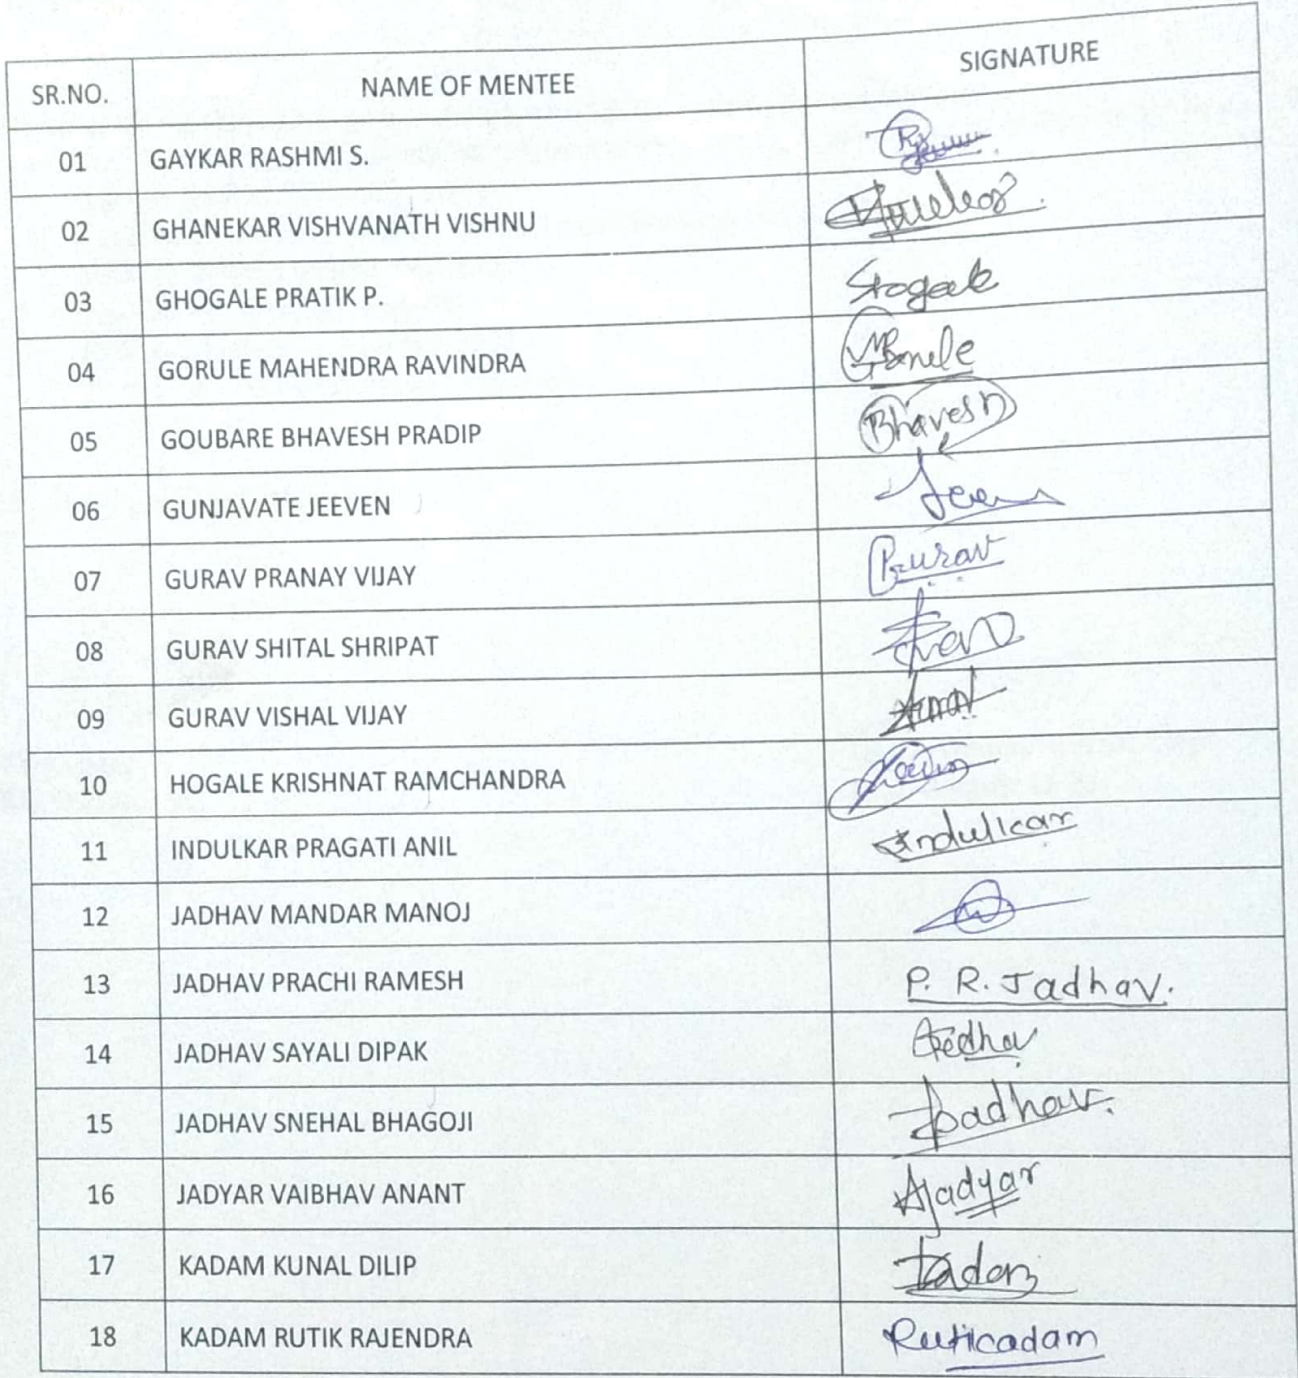 SR.NO. NAME OF MENTEE SIGNATURE
01 GAYKAR RASHMI S.
02 GHANEKAR VISHVANATH VISHNU
03 GHOGALE PRATIK P.
04 GORULE MAHENDRA RAVINDRA
05 GOUBARE BHAVESH PRADIP Bhavesh
06 GUNJAVATE JEEVEN
07 GURAV PRANAY VIJAY Gurav
08 GURAV SHITAL SHRIPAT
09 GURAV VISHAL VIJAY
10 HOGALE KRISHNAT RAMCHANDRA
11 INDULKAR PRAGATI ANIL Indulkar
12 JADHAV MANDAR MANOJ
13 JADHAV PRACHI RAMESH P. R. Jadhav.
14 JADHAV SAYALI DIPAK
15 JADHAV SNEHAL BHAGOJI
16 JADYAR VAIBHAV ANANT Ajadyar
17 KADAM KUNAL DILIP
18 KADAM RUTIK RAJENDRA Ruticadam